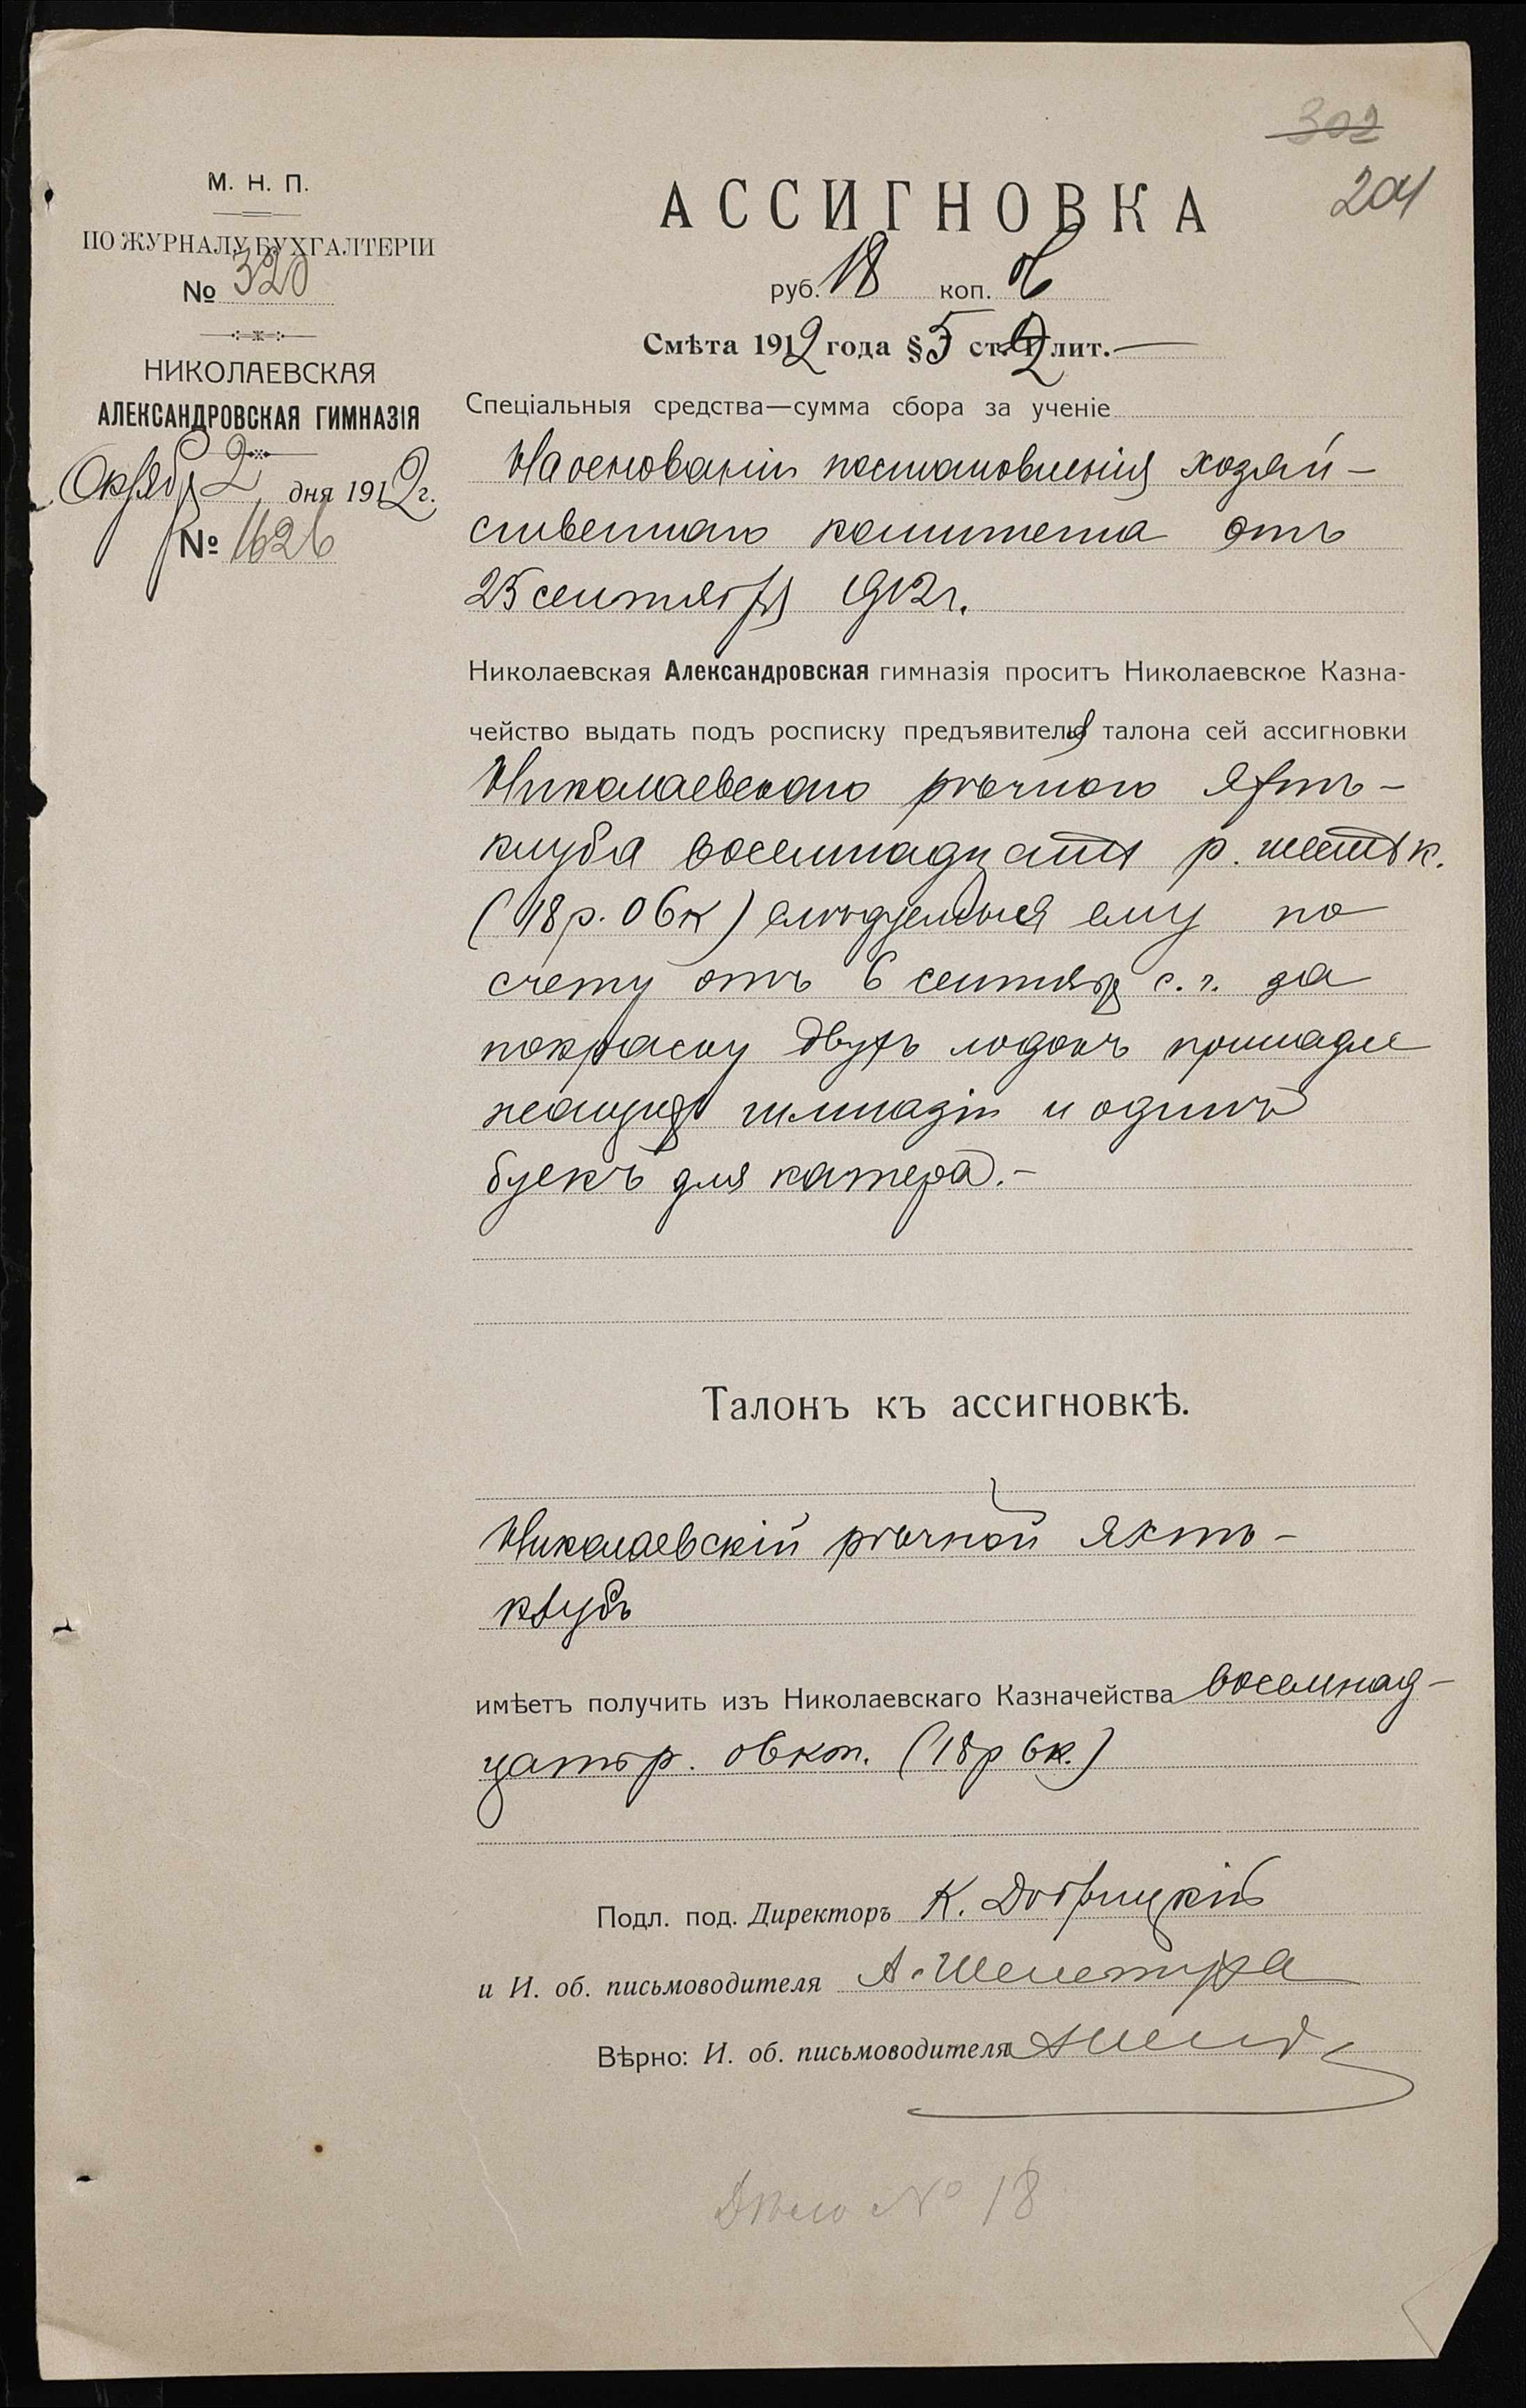 302
204
М. Н. П.
ПО ЖУРНАЛУ БУХГАЛТЕРІИ
№ 320
НИКОЛАЕВСКАЯ
АЛЕКСАНДРОВСКАЯ ГИМНАЗІЯ
Октября 2 дня 1912 г.
№ 1626
АССИГНОВКА
руб. 18 коп. 06
Смѣта 1912 года § 5 ст. 2 лит. —
Спеціальныя средства—сумма сбора за ученіе
На основаніи постановленія хозяй-
ственнаго комитета отъ
25 сентября 1912 г.
Николаевская Александровская гимназія проситъ Николаевское Казна-
чейство выдать подъ росписку предъявителя талона сей ассигновки
Николаевскаго рѣчного яхтъ-
клуба восемнадцать р. шесть к.
(18 р. 06 к) слѣдуемыя ему по
счету отъ 6 сентября с. г. за
покраску двухъ лодокъ принадле
жащихъ гимназіи и одинъ
буекъ для катера.-
Талонъ къ ассигновкѣ.
Николаевскій рѣчной яхтъ-
клубъ
имѣетъ получить изъ Николаевскаго Казначейства восемнад-
цать р. 06 коп. (18 р 6 к.)
Подл. под. Директоръ К.
и И. об. письмоводителя А. Шелепура
Вѣрно: И. об. письмоводителя
Дѣло № 18